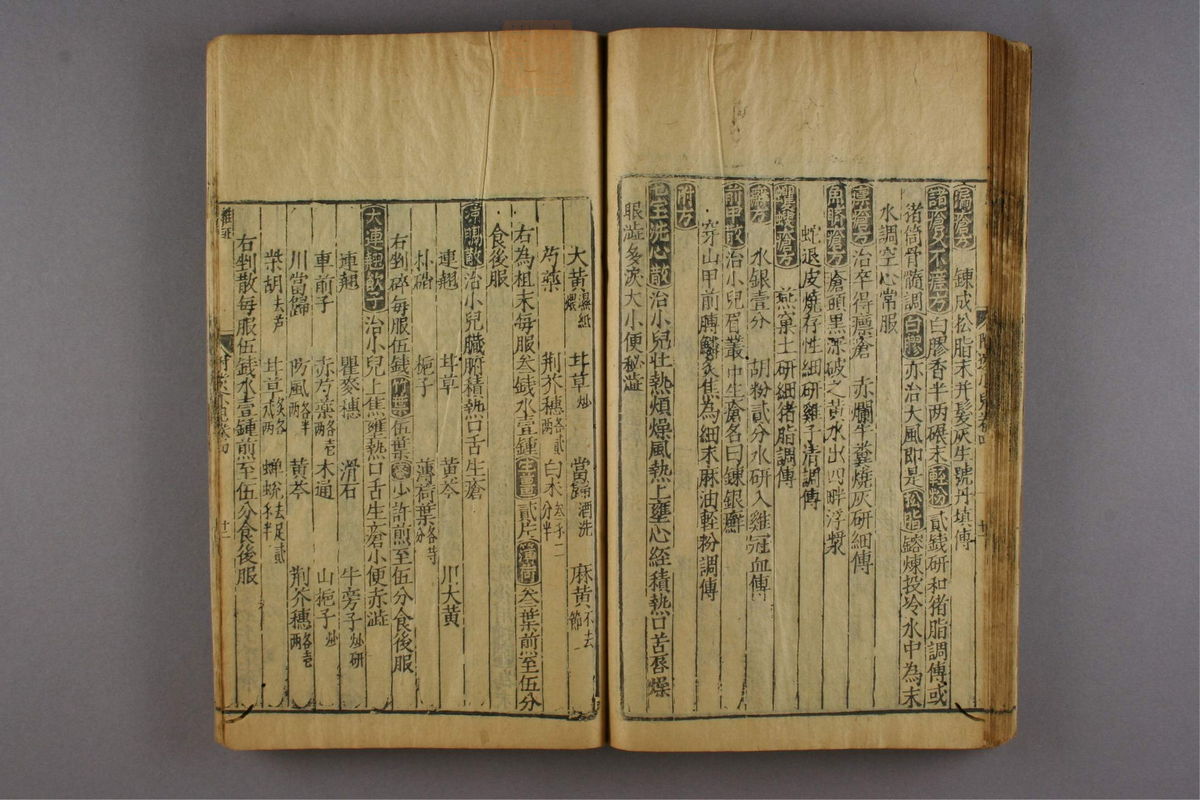 漏瘡方 鍊成松脂末并髪灰生號丹填傅
諸瘡久不瘥方 白膠香半两碾末輕粉貳錢研和猪脂調傅或
猪筒骨髓調白膠亦治大風即是松脂鎔煉投冷水中為末
水調空心常服
瘭瘡方 治卒得瘭瘡 赤爛牛糞燒灰研細傅
魚臍瘡方 瘡頭黑深破之黄水出四畔浮漿
蛇退皮燒存性細研雞子清調傅
蠼螋瘡方 燕窠土研細猪脂調傅
癬方 水銀壹分 胡粉貳分水研入雞冠血傅
前甲散 治小兒眉叢中生瘡名曰鍊銀癬
穿山甲前膊鱗炙焦為細末麻油輕粉調傅
附方
洗心散 治小兒壮熱煩燥風熱上壅心経積熱口苦唇燥
眼澁多淚大小便秘澁
大黄濕紙煨 甘草炒 當歸酒洗 麻黄不去節
芍藥 荆芥穗各貳两 白术
右為粗末每服叁錢水壹鍾生薑貳片薄荷叁葉煎至伍分
食後服
治小兒臓腑積熱口舌生瘡
連翹 甘草 黄芩 川大黄
朴硝 梔子 薄荷葉各等分
右剉碎每服伍錢竹葉伍葉蜜少許煎至伍分食後服
大連翹飲子 治小兒上焦壅熱口舌生瘡小便赤澁
連翹 瞿麥穗 滑石 牛旁子炒研
車前子 赤芍藥各壱两 木通 山梔子炒
川當歸 防風各半两 黄芩 荆芥穗各壱两
柴胡去芦 甘草炙各貳两 蟬蛻去足貳錢半
右剉散每服伍錢水壹鍾煎至伍分食後服